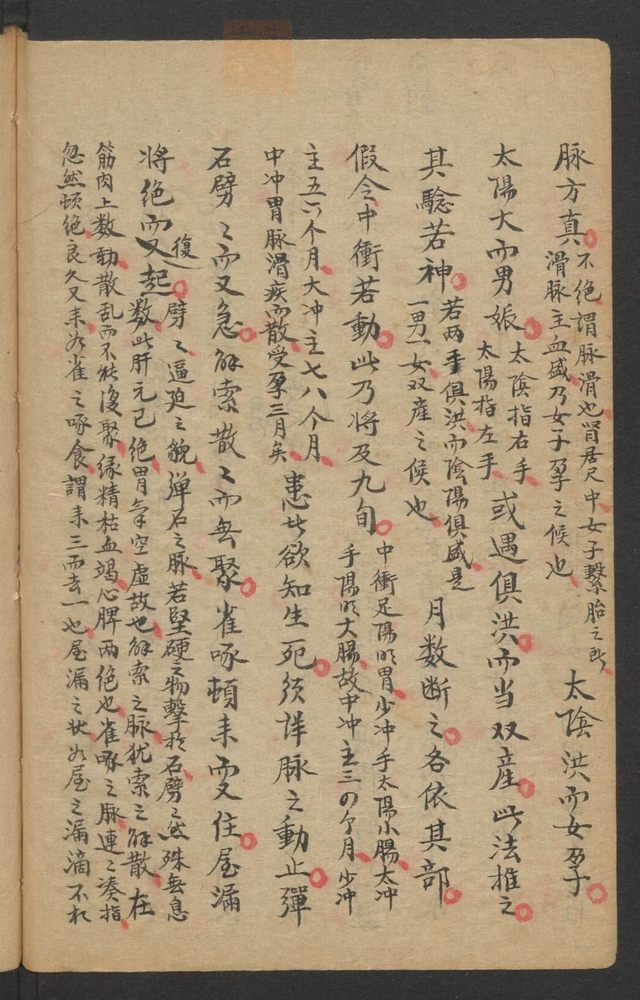 脉方真 不绝謂脉滑也肾居尺中女子繫胎之所
滑脉主血盛乃女子孕之候也 太陰洪而女孕
太陽大而男娠 太陰指右手
太陽指左手 或遇俱洪而当双産此法推之
其驗若神 若两手俱洪而陰陽俱盛是
一男一女双産之候也 月数断之各依其部
假令中衝若動此乃将及九旬 中衝足陽明胃少冲手太陽小腸太冲
手陽明大腸故中冲主三四个月少冲
主五六个月大冲主七八个月
中冲胃脉滑疾而散受孕三月矣 患此欲知生死须詳脉之動止彈
石劈〻而又急解索散〻而無聚雀啄頓来而又住屋漏
将绝而又復起 劈〻逼迫之貌弹石之脉若堅硬之物擊於石劈〻然殊無息
数此肝元已绝胃氣空虚故也解索之脉犹索之解散在
筋肉上数動散乱而不能復聚缘精枯血竭心脾两绝也雀啄之脉連〻湊指
忽然頓绝良久又来如雀之啄食謂来三而去一也屋漏之状如屋之漏滴不相